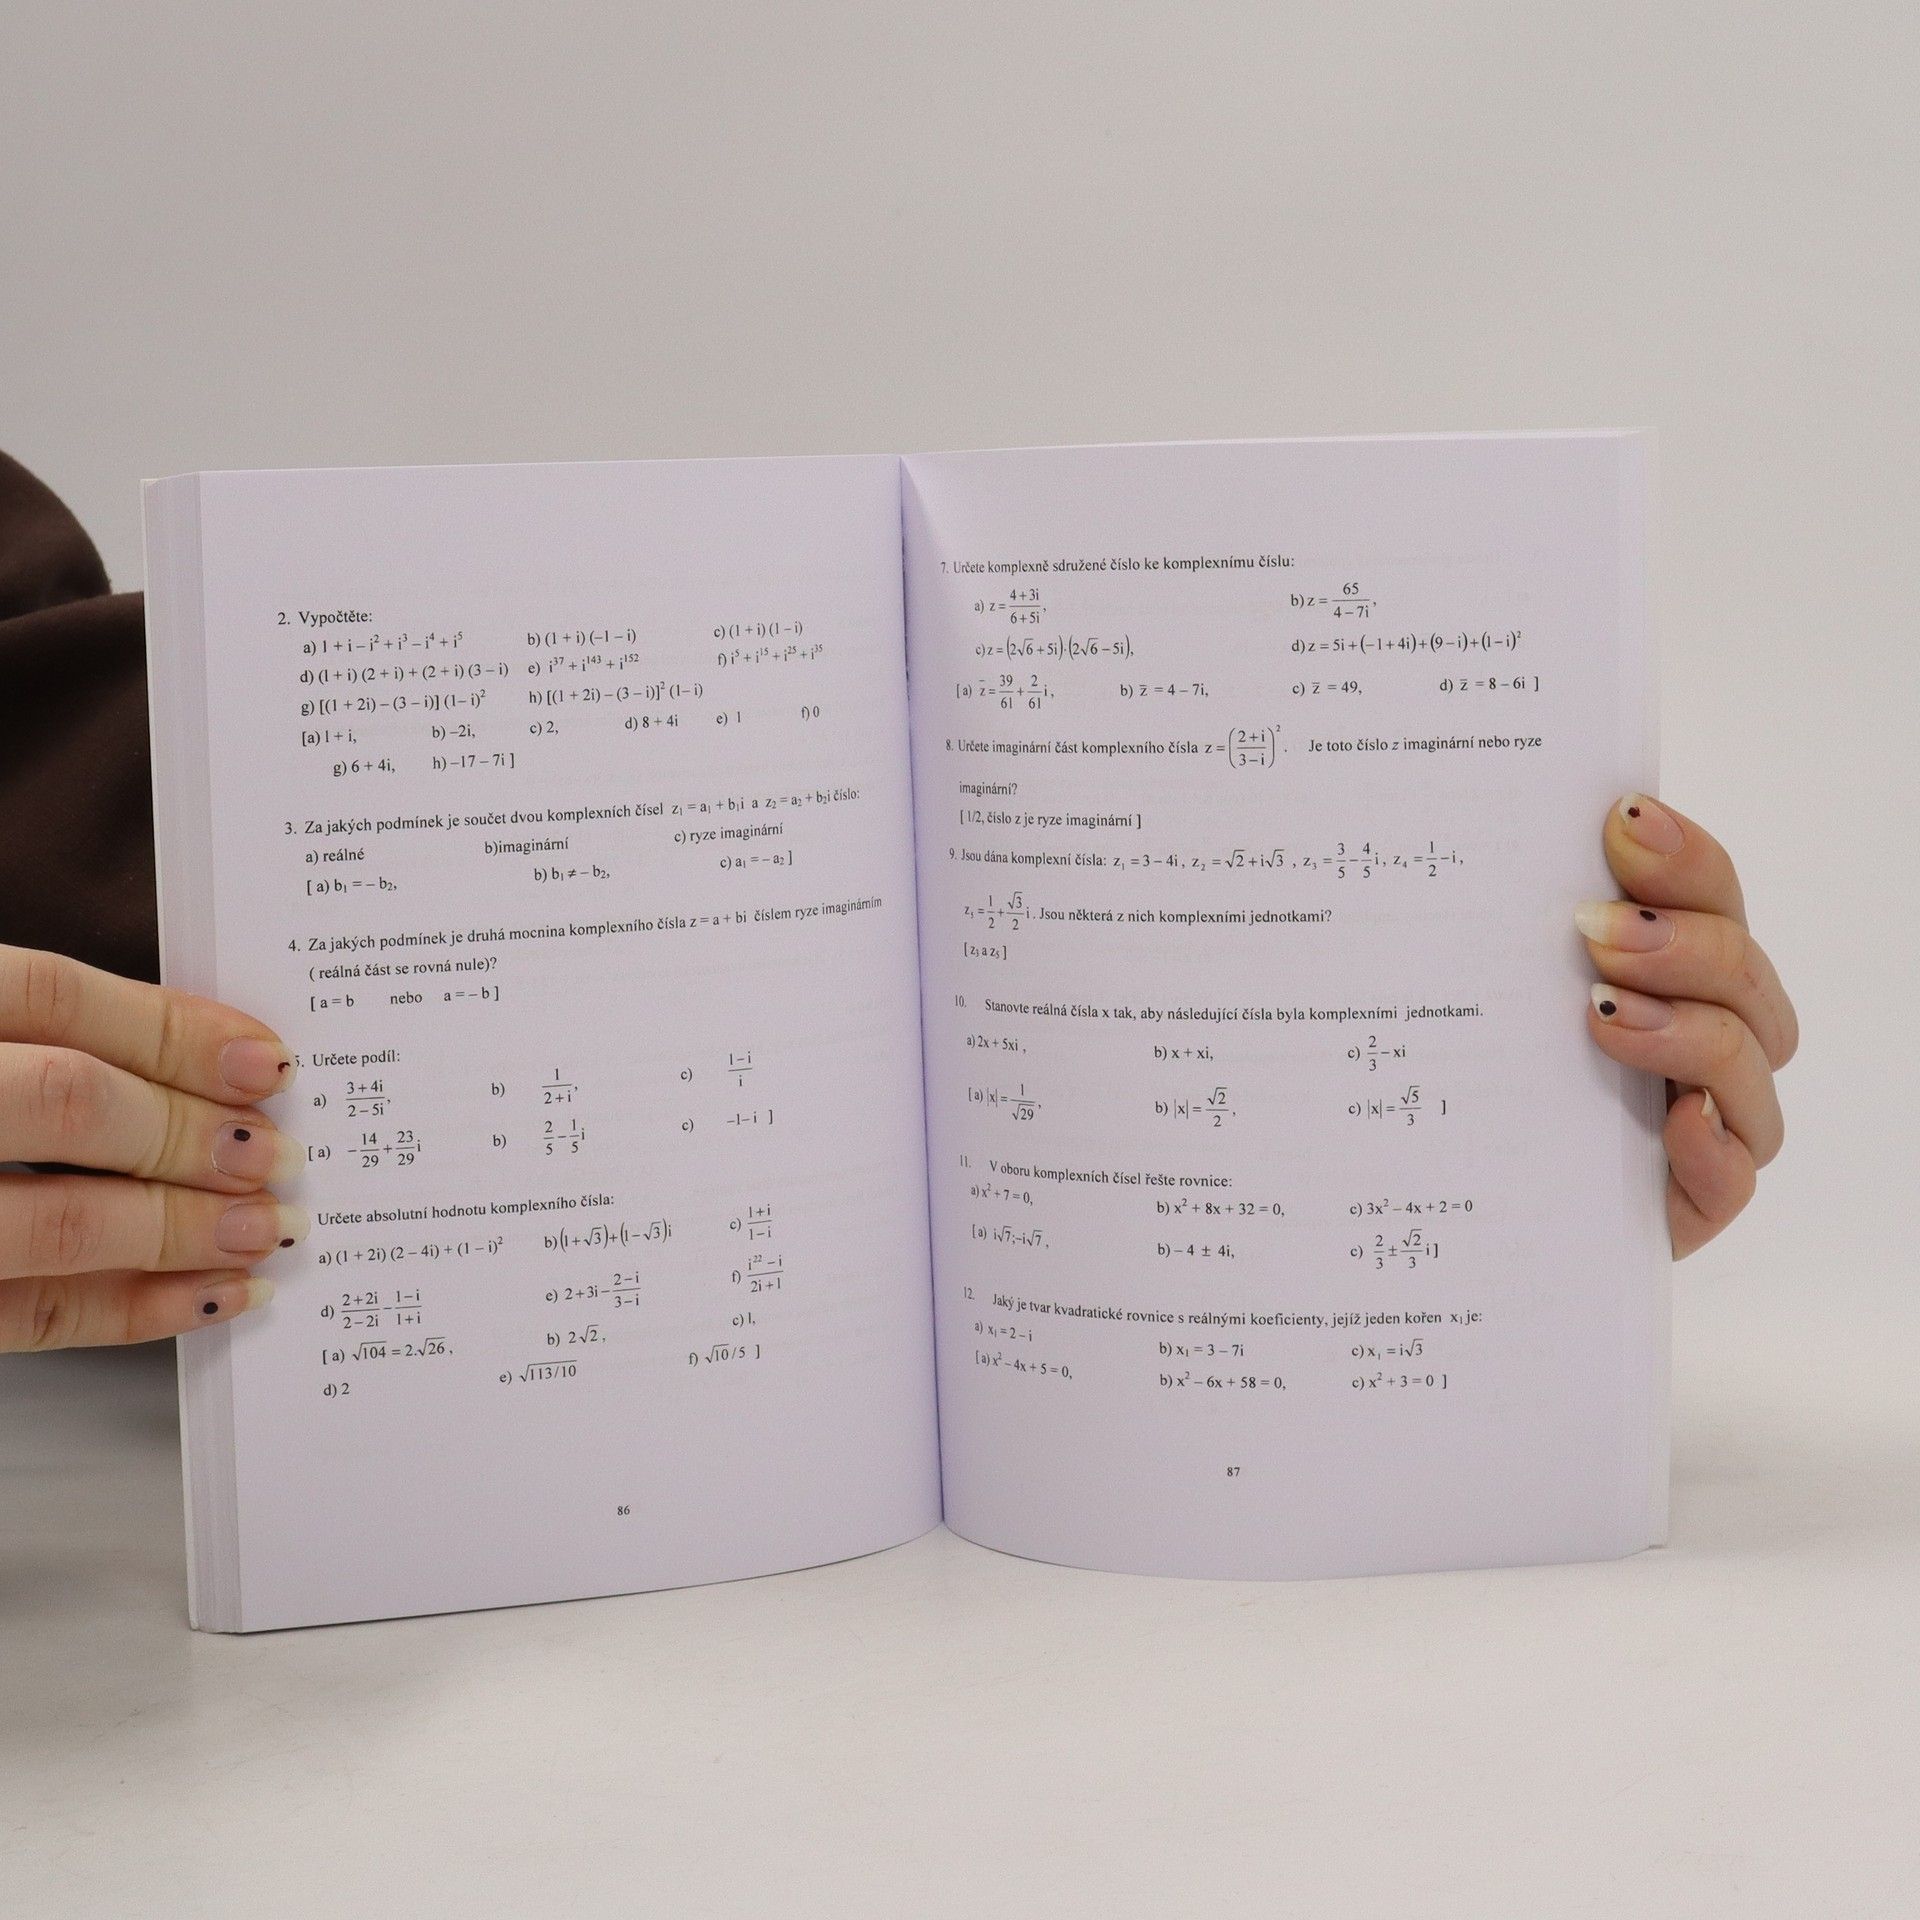 2. Vypočtěte:
a) 1 + i – i² + i³ – i⁴ + i⁵ b) (1 + i) (–1 – i) c) (1 + i) (1 – i)
d) (1 + i) (2 + i) + (2 + i) (3 – i) e) i³⁷ + i¹⁴³ + i¹⁵² f) i⁵ + i¹⁵ + i²⁵ + i³⁵
g) [(1 + 2i) – (3 – i)] (1– i)² h) [(1 + 2i) – (3 – i)]² (1– i)
[a) 1 + i, b) –2i, c) 2, d) 8 + 4i e) 1 f) 0
g) 6 + 4i, h) –17 – 7i ]
3. Za jakých podmínek je součet dvou komplexních čísel z₁ = a₁ + b₁i a z₂ = a₂ + b₂i číslo:
a) reálné b)imaginární c) ryze imaginární
[ a) b₁ = – b₂, b) b₁ ≠ – b₂, c) a₁ = – a₂ ]
4. Za jakých podmínek je druhá mocnina komplexního čísla z = a + bi číslem ryze imaginárním
( reálná část se rovná nule)?
[ a = b nebo a = – b ]
5. Určete podíl:
a) (3 + 4i)/(2 – 5i), b) 1/(2 + i), c) (1 – i)/i
[ a) –14/29 + 23/29 i b) 2/5 – 1/5 i c) –1– i ]
Určete absolutní hodnotu komplexního čísla:
a) (1 + 2i) (2 – 4i) + (1 – i)² b) (1+√3)+(1–√3)i c) (1+i)/(1–i)
d) (2+2i)/(2–2i) – (1–i)/(1+i) e) 2+3i – (2–i)/(3–i) f) (i²² – i)/(2i+1)
[ a) √104 = 2.√26 , b) 2√2 , c) 1,
d) 2 e) √113/10 f) √10/5 ]
86
7. Určete komplexně sdružené číslo ke komplexnímu číslu:
a) z = (4+3i)/(6+5i), b) z = 65/(4–7i),
c) z = (2√6 + 5i).(2√6 – 5i), d) z = 5i + (–1+4i)+(9–i)+(1–i)²
[a) z̄ = 39/61 + 2/61 i, b) z̄ = 4 – 7i, c) z̄ = 49, d) z̄ = 8 – 6i ]
8. Určete imaginární část komplexního čísla z = ((2+i)/(3–i))². Je toto číslo z imaginární nebo ryze
imaginární?
[ 1/2, číslo z je ryze imaginární ]
9. Jsou dána komplexní čísla: z₁ = 3 – 4i , z₂ = √2 + i√3 , z₃ = 3/5 – 4/5 i, z₄ = 1/2 – i,
z₅ = 1/2 + √3/2 i . Jsou některá z nich komplexními jednotkami?
[ z₃ a z₅ ]
10. Stanovte reálná čísla x tak, aby následující čísla byla komplexními jednotkami.
a) 2x + 5xi , b) x + xi, c) 2/3 – xi
[ a) |x| = 1/√29, b) |x| = √2/2, c) |x| = √5/3 ]
11. V oboru komplexních čísel řešte rovnice:
a) x² + 7 = 0, b) x² + 8x + 32 = 0, c) 3x² – 4x + 2 = 0
[a) i√7;–i√7 , b) – 4 ± 4i, c) 2/3 ± √2/3 i ]
12. Jaký je tvar kvadratické rovnice s reálnými koeficienty, jejíž jeden kořen x₁ je:
a) x₁ = 2 – i b) x₁ = 3 – 7i c) x₁ = i√3
[ a) x² – 4x + 5 = 0, b) x² – 6x + 58 = 0, c) x² + 3 = 0 ]
87